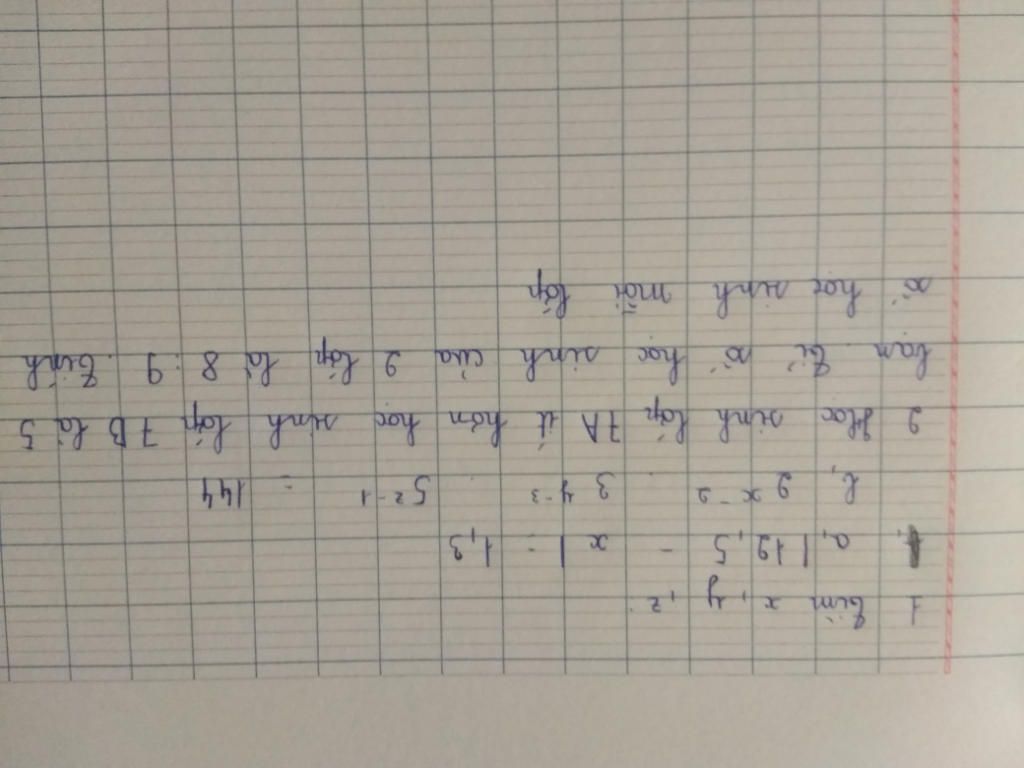 1 Tìm x, y, z.
a, | 12,5 - x | = 1,3
b, 2 x-2 . 3 y-3 . 5 z-1 = 144
2 Học sinh lớp 7A ít hơn học sinh lớp 7B là 5
bạn. Tỉ số học sinh của 2 lớp là 8 : 9. Tính
số học sinh mỗi lớp